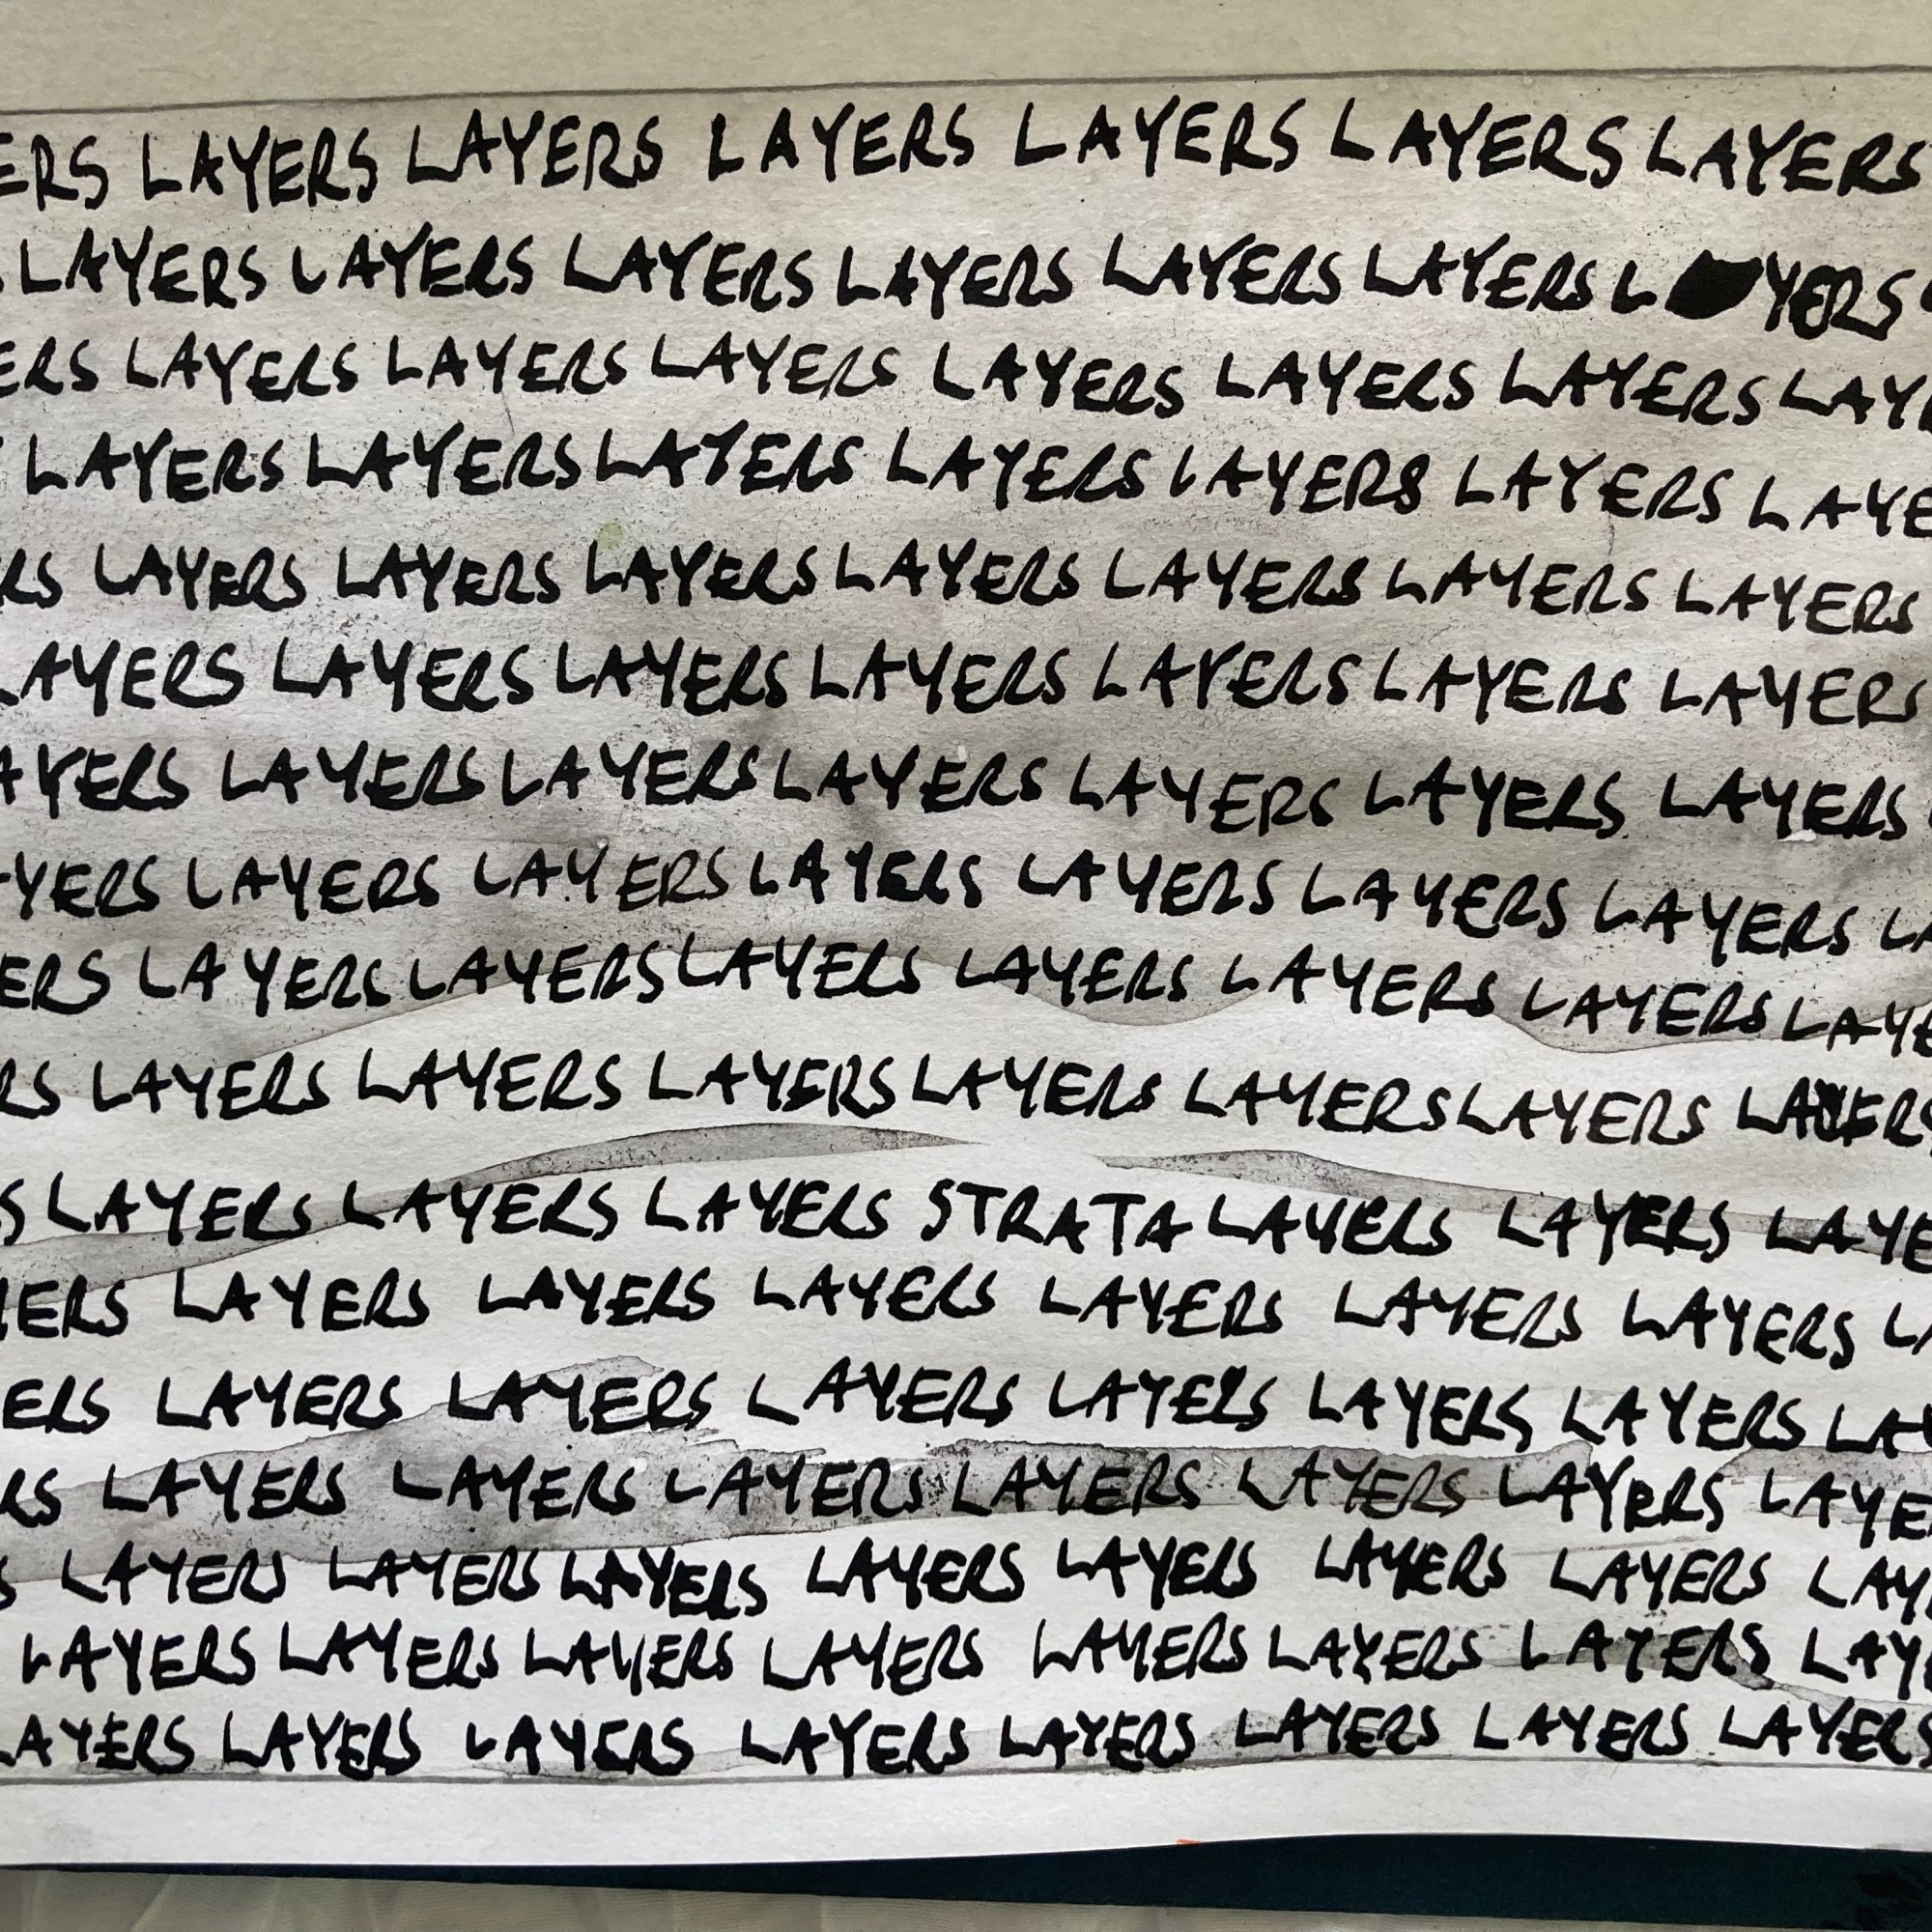 ERS LAYERS LAYERS LAYERS LAYERS LAYERS LAYERS
LAYERS LAYERS LAYERS LAYERS LAYERS LAYERS L YERS
ERS LAYERS LAYERS LAYERS LAYERS LAYERS LAYERS LAY
LAYERS LAYERS LAYERS LAYERS LAYERS LAYERS LAYE
RS LAYERS LAYERS LAYERS LAYERS LAYERS LAYERS LAYERS
LAYERS LAYERS LAYERS LAYERS LAYERS LAYERS LAYERS
AYERS LAYERS LAYERS LAYERS LAYERS LAYERS LAYERS
YERS LAYERS LAYERS LAYERS LAYERS LAYERS LAYERS LA
ERS LAYERS LAYERS LAYERS LAYERS LAYERS LAYERS LAYE
RS LAYERS LAYERS LAYERS LAYERS LAYERS LAYERS LAYERS
S LAYERS LAYERS LAYERS STRATA LAYERS LAYERS LAYE
YERS LAYERS LAYERS LAYERS LAYERS LAYERS LAYERS LA
ERS LAYERS LAYERS LAYERS LAYERS LAYERS LAYERS LAY
RS LAYERS LAYERS LAYERS LAYERS LAYERS LAYERS LAYE
S LAYERS LAYERS LAYERS LAYERS LAYERS LAYERS LAYERS LAY
LAYERS LAYERS LAYERS LAYERS LAYERS LAYERS LAYERS LAYE
LAYERS LAYERS LAYERS LAYERS LAYERS LAYERS LAYERS LAYERS